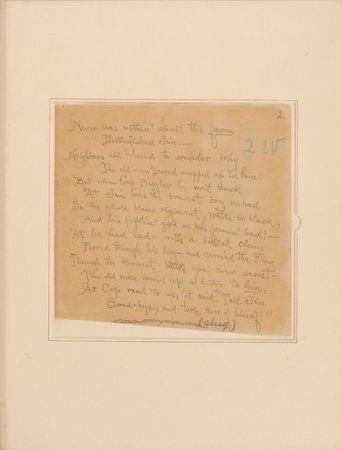 2
Never was nothin' about the farm
Distinguished Jim.—
2 W
Neighbors all used to wonder why
The old man 'peared wrapped up in him:
But when Cap Biggler he writ back
'At Jim was the bravest boy we had
In the whole blame regiment, white or black,
And his fightin' good as his farmin' bad!—
'At he had led—with a bullet clean
Bored through his leg—and carried the Flag
Through the bloodiest battle you ever seen!—
The old man wound up a letter to him
'At Cap read to us, 'at said: "Tell Jim
Good-bye; and take keer of hisse'f!"
(slug)